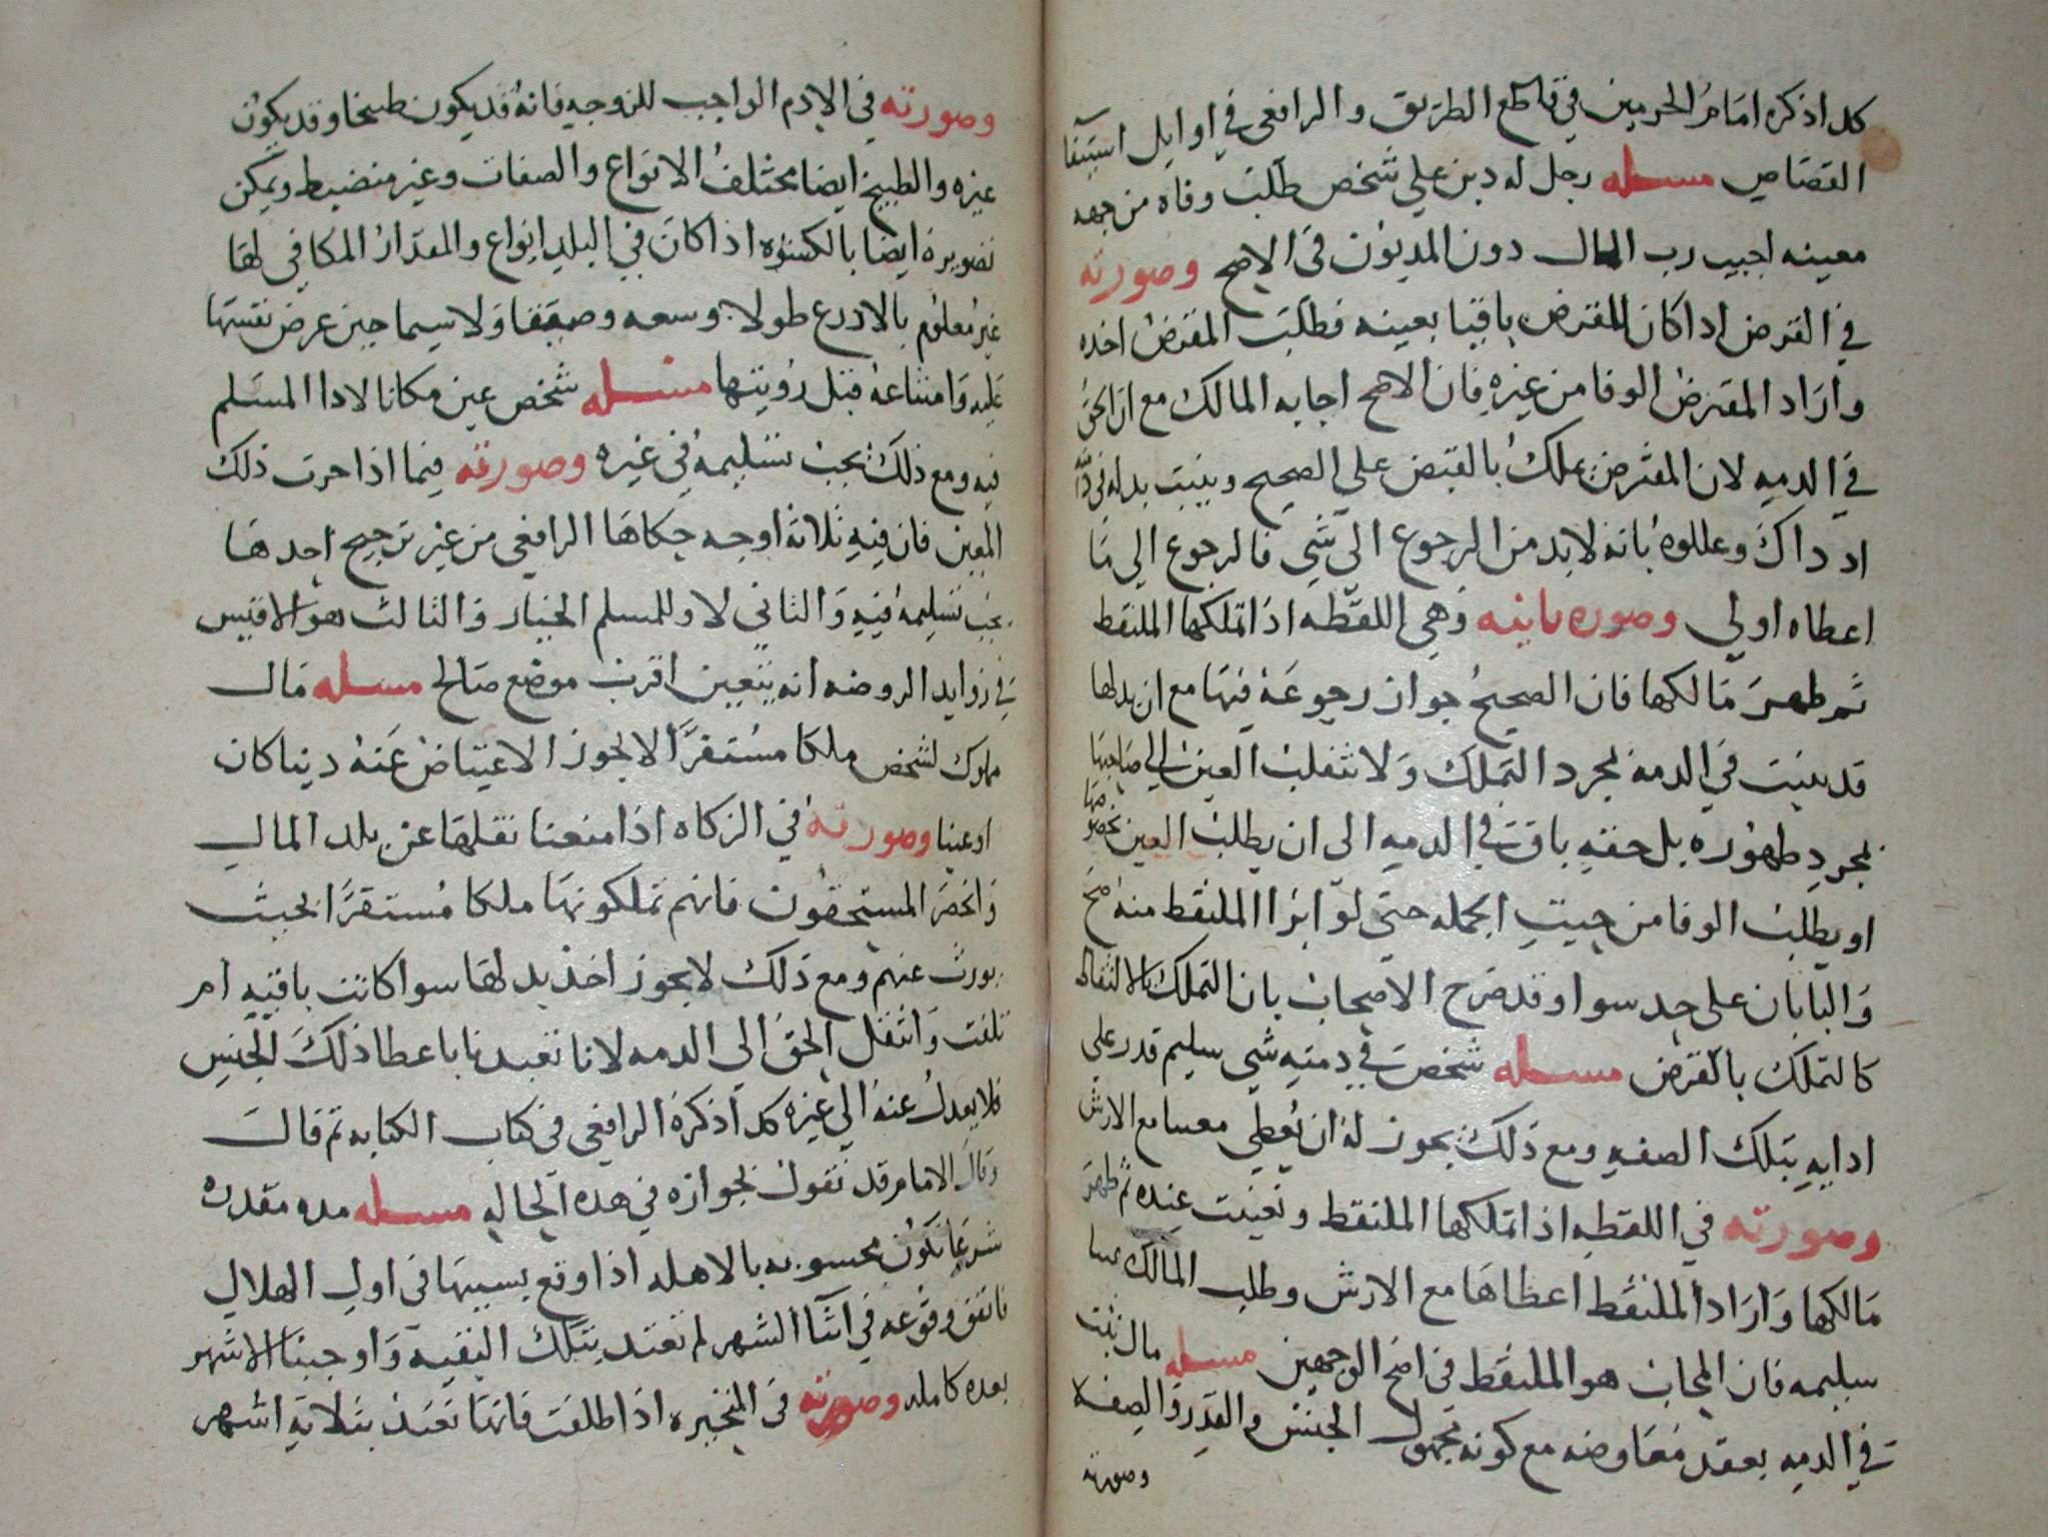 كذا ذكره امام الحرمين في قاطع الطريق والرافعي في اوايل استيفا
القصاص مسله رجل له دين علي شخص طلب وفاه من جهه
معينه اجيب رب المال دون المديون في الاصح وصورته
في القرض اذا كان المقرض باقيا بعينه فطلب المقرض اخذه
واراد المقترض الوفا من غيره فان الاصح اجابه المالك مع ان الحق
في الدمه لان المقترض يملك بالقبض علي الصحيح ويثبت بدله في
اد داك وعللوه بانه لا بد من الرجوع الي شي فالرجوع الي ما
اعطاه اولي وصوره ثانيه وهي اللقطه اذا تملكها الملتقط
ثم ظهر مالكها فان الصحيح جواز رجوعه فيها مع ان بدلها
قد يثبت في الدمه بمجرد التملك ولا تنقلب العين الي صاحبها
بمجرد ظهوره بل حقه باق في الدمه الى ان يطلب العين بخصوصها
او يطلب الوفا من حيث الجمله حتى لو ابرا الملتقط منه صح
والبابان على حد سوا وقد صرح الاصحاب بان التملك بالالتقاط
كالتملك بالقرض مسله شخص في دمته شي سليم قدر على
ادايه بتلك الصفه ومع ذلك يجوز له ان يعطي معيبا مع الارش
وصورته في اللقطه اذا تملكها الملتقط وتعيبت عنده ثم ظهر
مالكها واراد الملتقط اعطاها مع الارش وطلب المالك
سليمه فان المجاب هو الملتقط في اصح الوجهين مسله مال ثبت
في الدمه بعقد معاوضه مع كونه مجهول الجنس والقدر والصفه
وصورته
وصورته في الادم الواجب للزوجه فانه قد يكون طبيخا وقد يكون
غيره والطبيخ ايضا مختلف الانواع والصفات وغير منضبط ويمكن
تصويره ايضا بالكسوه اذا كان في البلد انواع والمقدار المكافي لها
غير معلوم بالاذرع طولا وسعه وصفيقا ولا سيما حين عرض نفسها
عليه وامتناعه قبل رويتها مسله شخص عين مكانا لادا المسلم
فيه ومع ذلك يجب تسليمه في غيره وصورته فيما اذا خرب ذلك
المعين فان فيه ثلاثة اوجه حكاها الرافعي من غير ترجيح احدها
يجب تسليمه فيه والثاني لا وللمسلم الخيار والثالث هو الاقيس
في زوايد الروضه انه يتعين اقرب موضع صالح مسله مال
مملوك لشخص ملكا مستقرا لا يجوز الاعتياض عنه دينا كان
او عينا وصورته في الزكاه اذا منعنا نقلها عن بلد المال
وانحصر المستحقون فانهم تملكونها ملكا مستقرا بحيث
يورث عنهم ومع ذلك لا يجوز اخذ بدلها سوا كانت باقيه ام
تلفت وانتقل الحق الي الدمه لانا تعبدنا باعطا ذلك الجنس
فلا يعدل عنه الي غيره كذا ذكره الرافعي في كتاب الكتابه ثم قال
وقال الامام قد نقول بجوازه في هذه الحاله مسله مده مقدره
شرعا تكون محسوبه بالاهله اذا وقع بسببها في اول الهلال
فاتفق وقوعه في اثنا الشهر لم تعتد بتلك البقيه واوجبنا الاشهر
بعده كامله وصورته في المتحيره اذا طلقت فانها تعتد بثلاثه اشهر